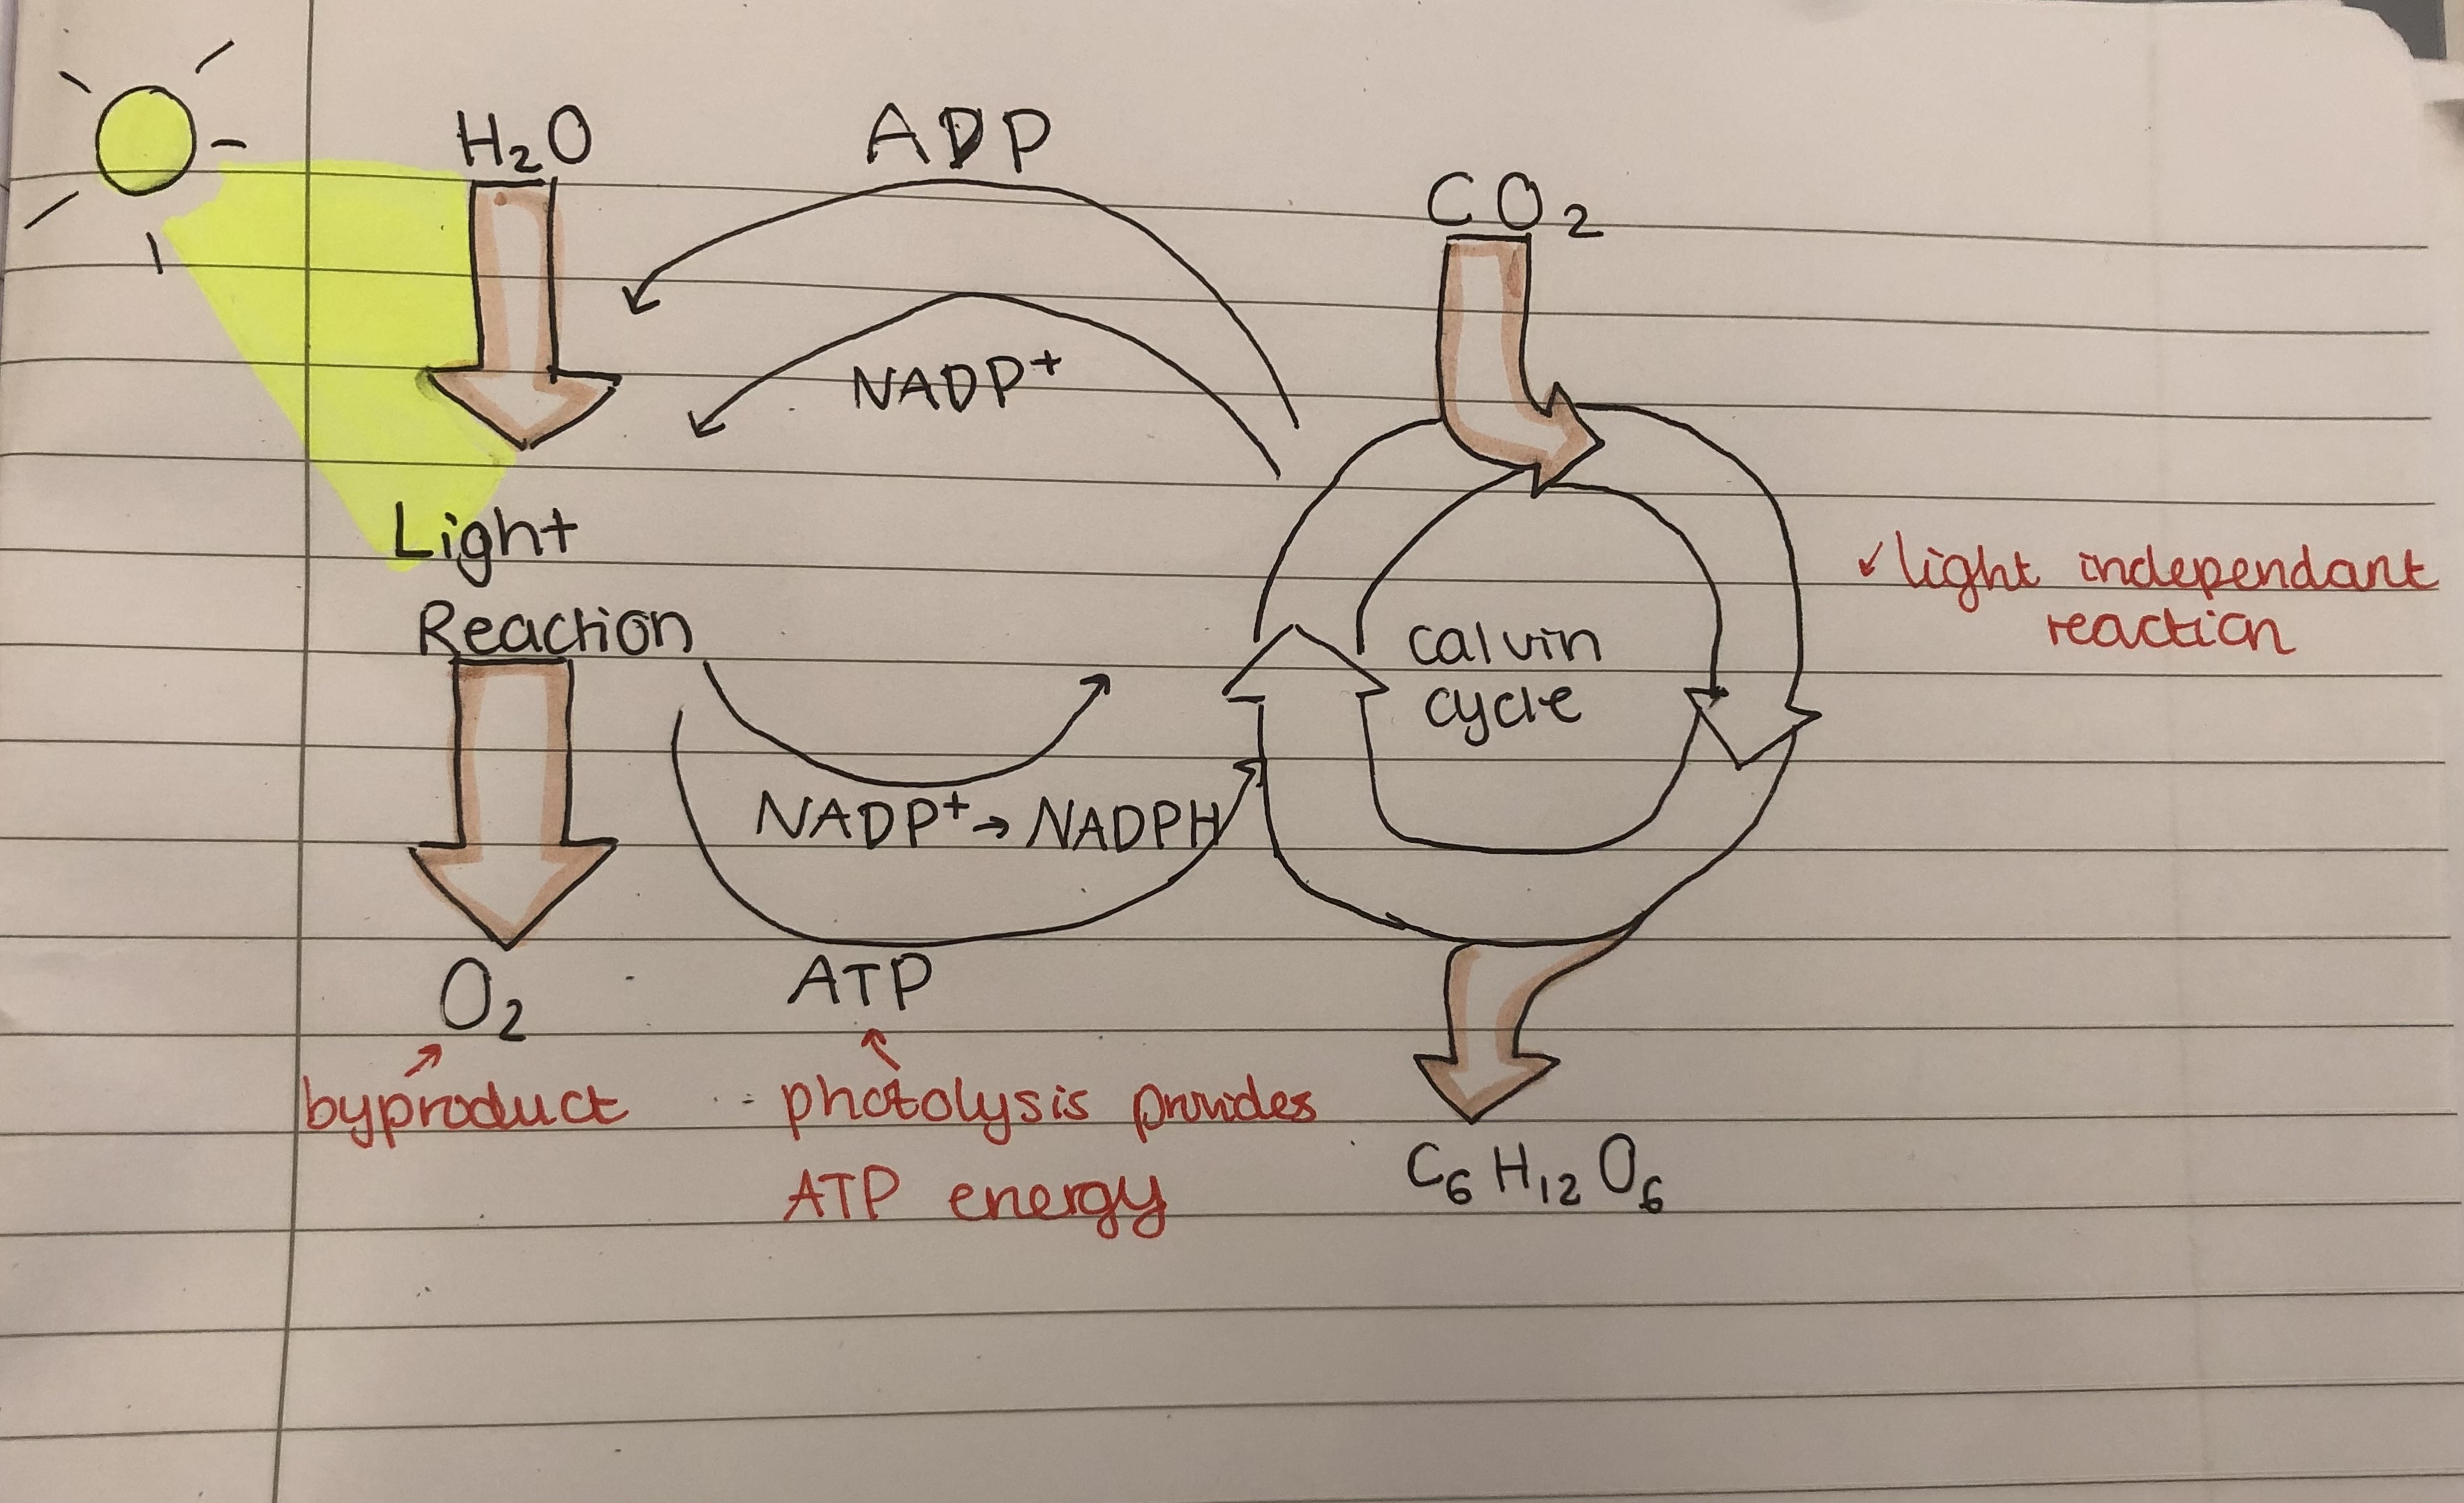 H₂O
ADP
CO₂
NADP⁺
Light
Reaction
calvin
cycle
light independant
reaction
NADP⁺→ NADPH
O₂
ATP
byproduct
photolysis provides
ATP energy
C₆H₁₂O₆